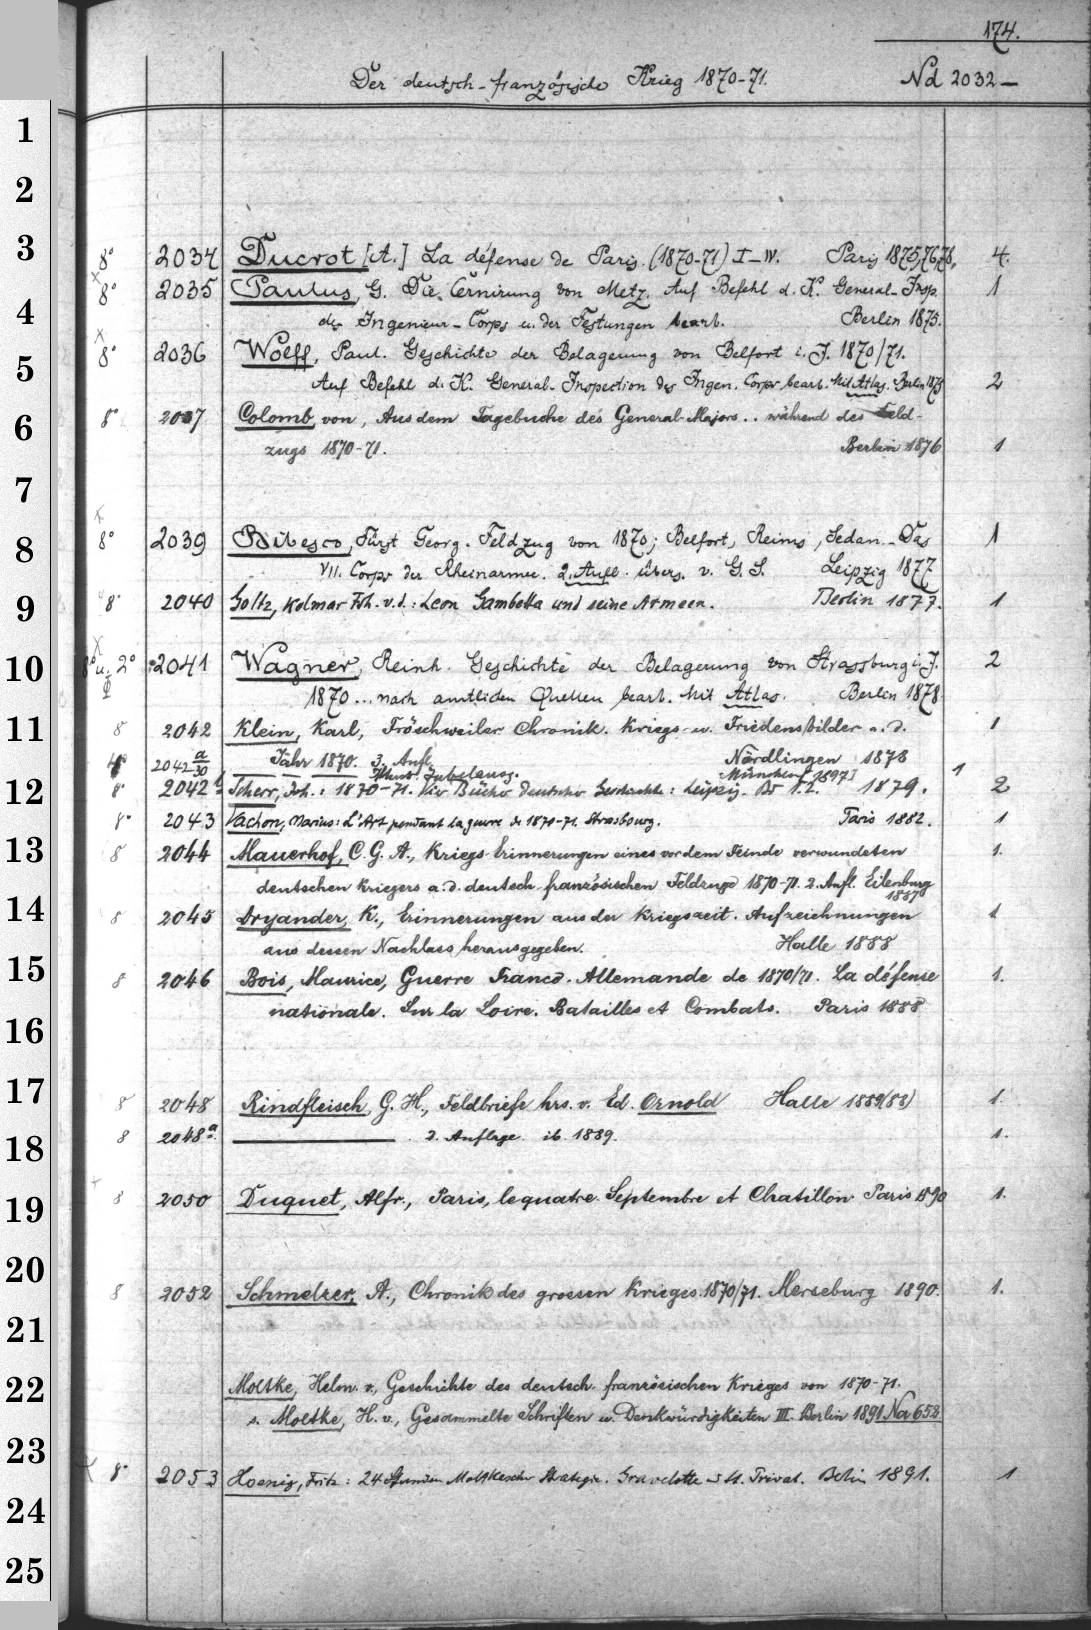 174.
Der deutsch-französische Krieg 1870-71. Nd 2032—
1
2
3
8° 2034 Ducrot [A.] La défense de Paris. (1870-71) I–IV. Paris 1875,76,78. 4.
8° 2035 Paulus, G. Die Cernirung von Metz. Auf Befehl d. K. General-Insp. 1
4
des Ingenieur-Corps u. der Festungen bearb. Berlin 1875.
8° 2036 Wolff, Paul. Geschichte der Belagerung von Belfort i. J. 1870/71.
5
Auf Befehl d. K. General-Inspection des Ingen. Corps bearb. Mit Atlas. Berlin 1875 2
8° 2037 Colomb, von, Aus dem Tagebuche des General-Majors .. während des Feld-
6
zugs 1870-71. Berlin 1876 1
7
8° 2039 Bibesco, Fürst Georg. Feldzug von 1870; Belfort, Reims, Sedan. Das 1
8
VII. Corps der Rheinarmee. 2. Aufl. übers. v. G. S. Leipzig 1877
9
8° 2040 Goltz, Kolmar Frh. v. d.: Leon Gambetta und seine Armeen. Berlin 1877. 1
10
8° u. 2° 2041 Wagner, Reinh. Geschichte der Belagerung von Strassburg i. J. 2
1870... nach amtlichen Quellen bearb. Mit Atlas. Berlin 1878
11
8 2042 Klein, Karl, Fröschweiler Chronik. Kriegs- u. Friedensbilder a. d. 1
Jahr 1870. 3. Aufl. Nördlingen 1878
2042 a/30 Illust. Jubelausg. München [1897] 1
12
8° 2042b Scherr, Joh.: 1870-71. Vier Bücher deutscher Geschichte: Leipzig. Bd 1.2. 1879. 2
8° 2043 Vachon, Marius: L'Art pendant la guerre de 1870-71. Strasbourg. Paris 1882. 1
13
8 2044 Mauerhof, C. G. A., Kriegs-Erinnerungen eines vor dem Feinde verwundeten 1.
deutschen Kriegers a. d. deutsch-französischen Feldzuge 1870-71. 2. Aufl. Eilenburg
1887
14
8 2045 Dryander, K., Erinnerungen aus der Kriegszeit. Aufzeichnungen 1
aus dessen Nachlass herausgegeben. Halle 1888
15
8 2046 Bois, Maurice, Guerre Franco-Allemande de 1870/71. La défense 1.
nationale. Sur la Loire. Batailles et Combats. Paris 1888
16
17
8 2048 Rindfleisch, G. H., Feldbriefe hrs. v. Ed. Ornold Halle 1889(88) 1.
8 2048a. ——— . 2. Auflage ib. 1889. 1.
18
8 2050 Duquet, Alfr., Paris, le quatre Septembre et Chatillon Paris 1890 1.
19
20
8 2052 Schmelzer, A., Chronik des grossen Krieges 1870/71. Merseburg 1890. 1.
21
22
Moltke, Helm. v., Geschichte des deutsch-französischen Krieges von 1870-71.
s. Moltke, H. v., Gesammelte Schriften u. Denkwürdigkeiten III. Berlin 1891 Na 658
23
8° 2053 Hoenig, Fritz: 24 Stunden Moltkescher Strategie. Gravelotte u. St. Privat. Berlin 1891. 1
24
25